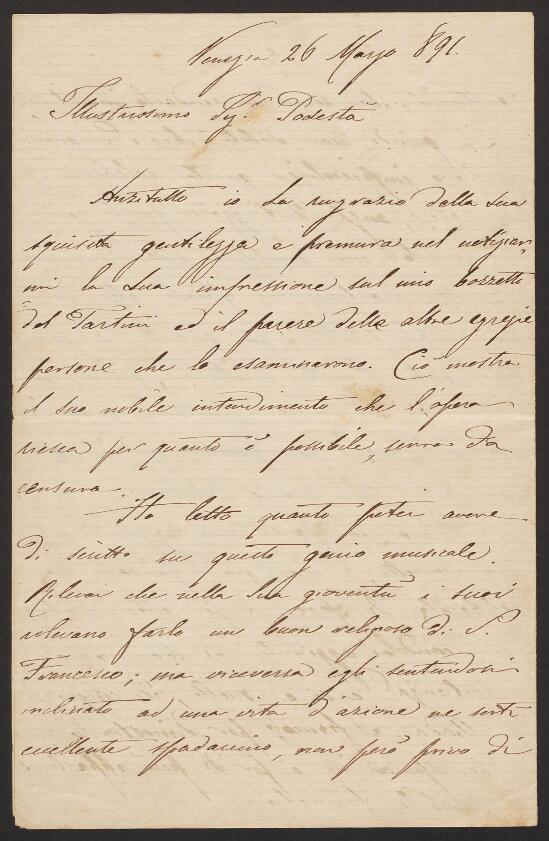 Venezia 26 Marzo 891.
Illustrissimo Sig.r Podestà
Anzitutto io La ringrazio della Sua
squisita gentilezza e premura nel notiziar-
mi la Sua impressione sul mio bozzetto
del Tartini ed il parere delle altre egregie
persone che lo esaminarono. Ciò mostra
il suo nobile intendimento che l'opera
riesca per quanto è possibile, senza da
censura.
Ho letto quanto potei avere
di scritto su questo genio musicale.
Rilevai che nella Sua gioventù i suoi
volevano farlo un buon religioso di S.
Francesco; ma viceversa egli sentendosi
inclinato ad una vita d'azione ne sortì
eccellente spadaccino, non però privo di